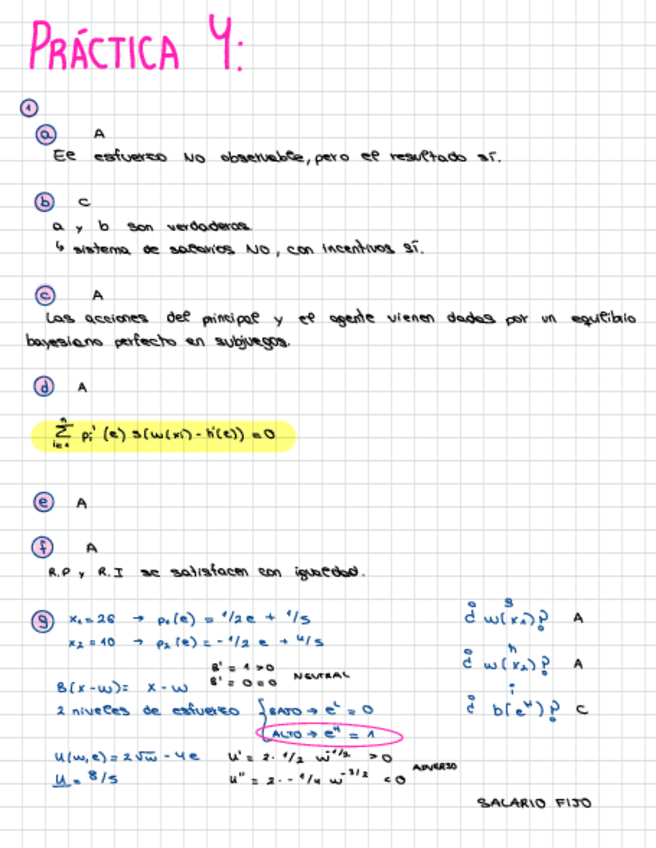 PRÁCTICA 4:
1
a A
El esfuerzo NO observable, pero el resultado sí.
b C
a y b son verdaderas
↳ sistema de salarios NO, con incentivos SÍ.
c A
Las acciones del principal y el agente vienen dadas por un equilibrio
bayesiano perfecto en subjuegos.
d A
n
Σ pi' (e) s(w(xi) - h'(e)) = 0
e A
f A
R.P y R.I se satisfacen con igualdad.
g x₁ = 26 → p₁(e) = 1/2 e + 1/5 g ¿ w(x₁)? A
x₂ = 10 → p₂(e) = - 1/2 e + 4/5
B' = 1 > 0 h ¿ w(x₂)? A
B(x-w) = x - w B' = 0 = 0 NEUTRAL
2 niveles de esfuerzo { BAJO → e^L = 0 i ¿ b(e^H)? C
ALTO → e^H = 1
U(w,e) = 2√w - 4e U' = 2 · 1/2 w^-1/2 > 0
U = 8/5 U'' = 2 · - 1/4 w^-3/2 < 0 ADVERSO
SALARIO FIJO